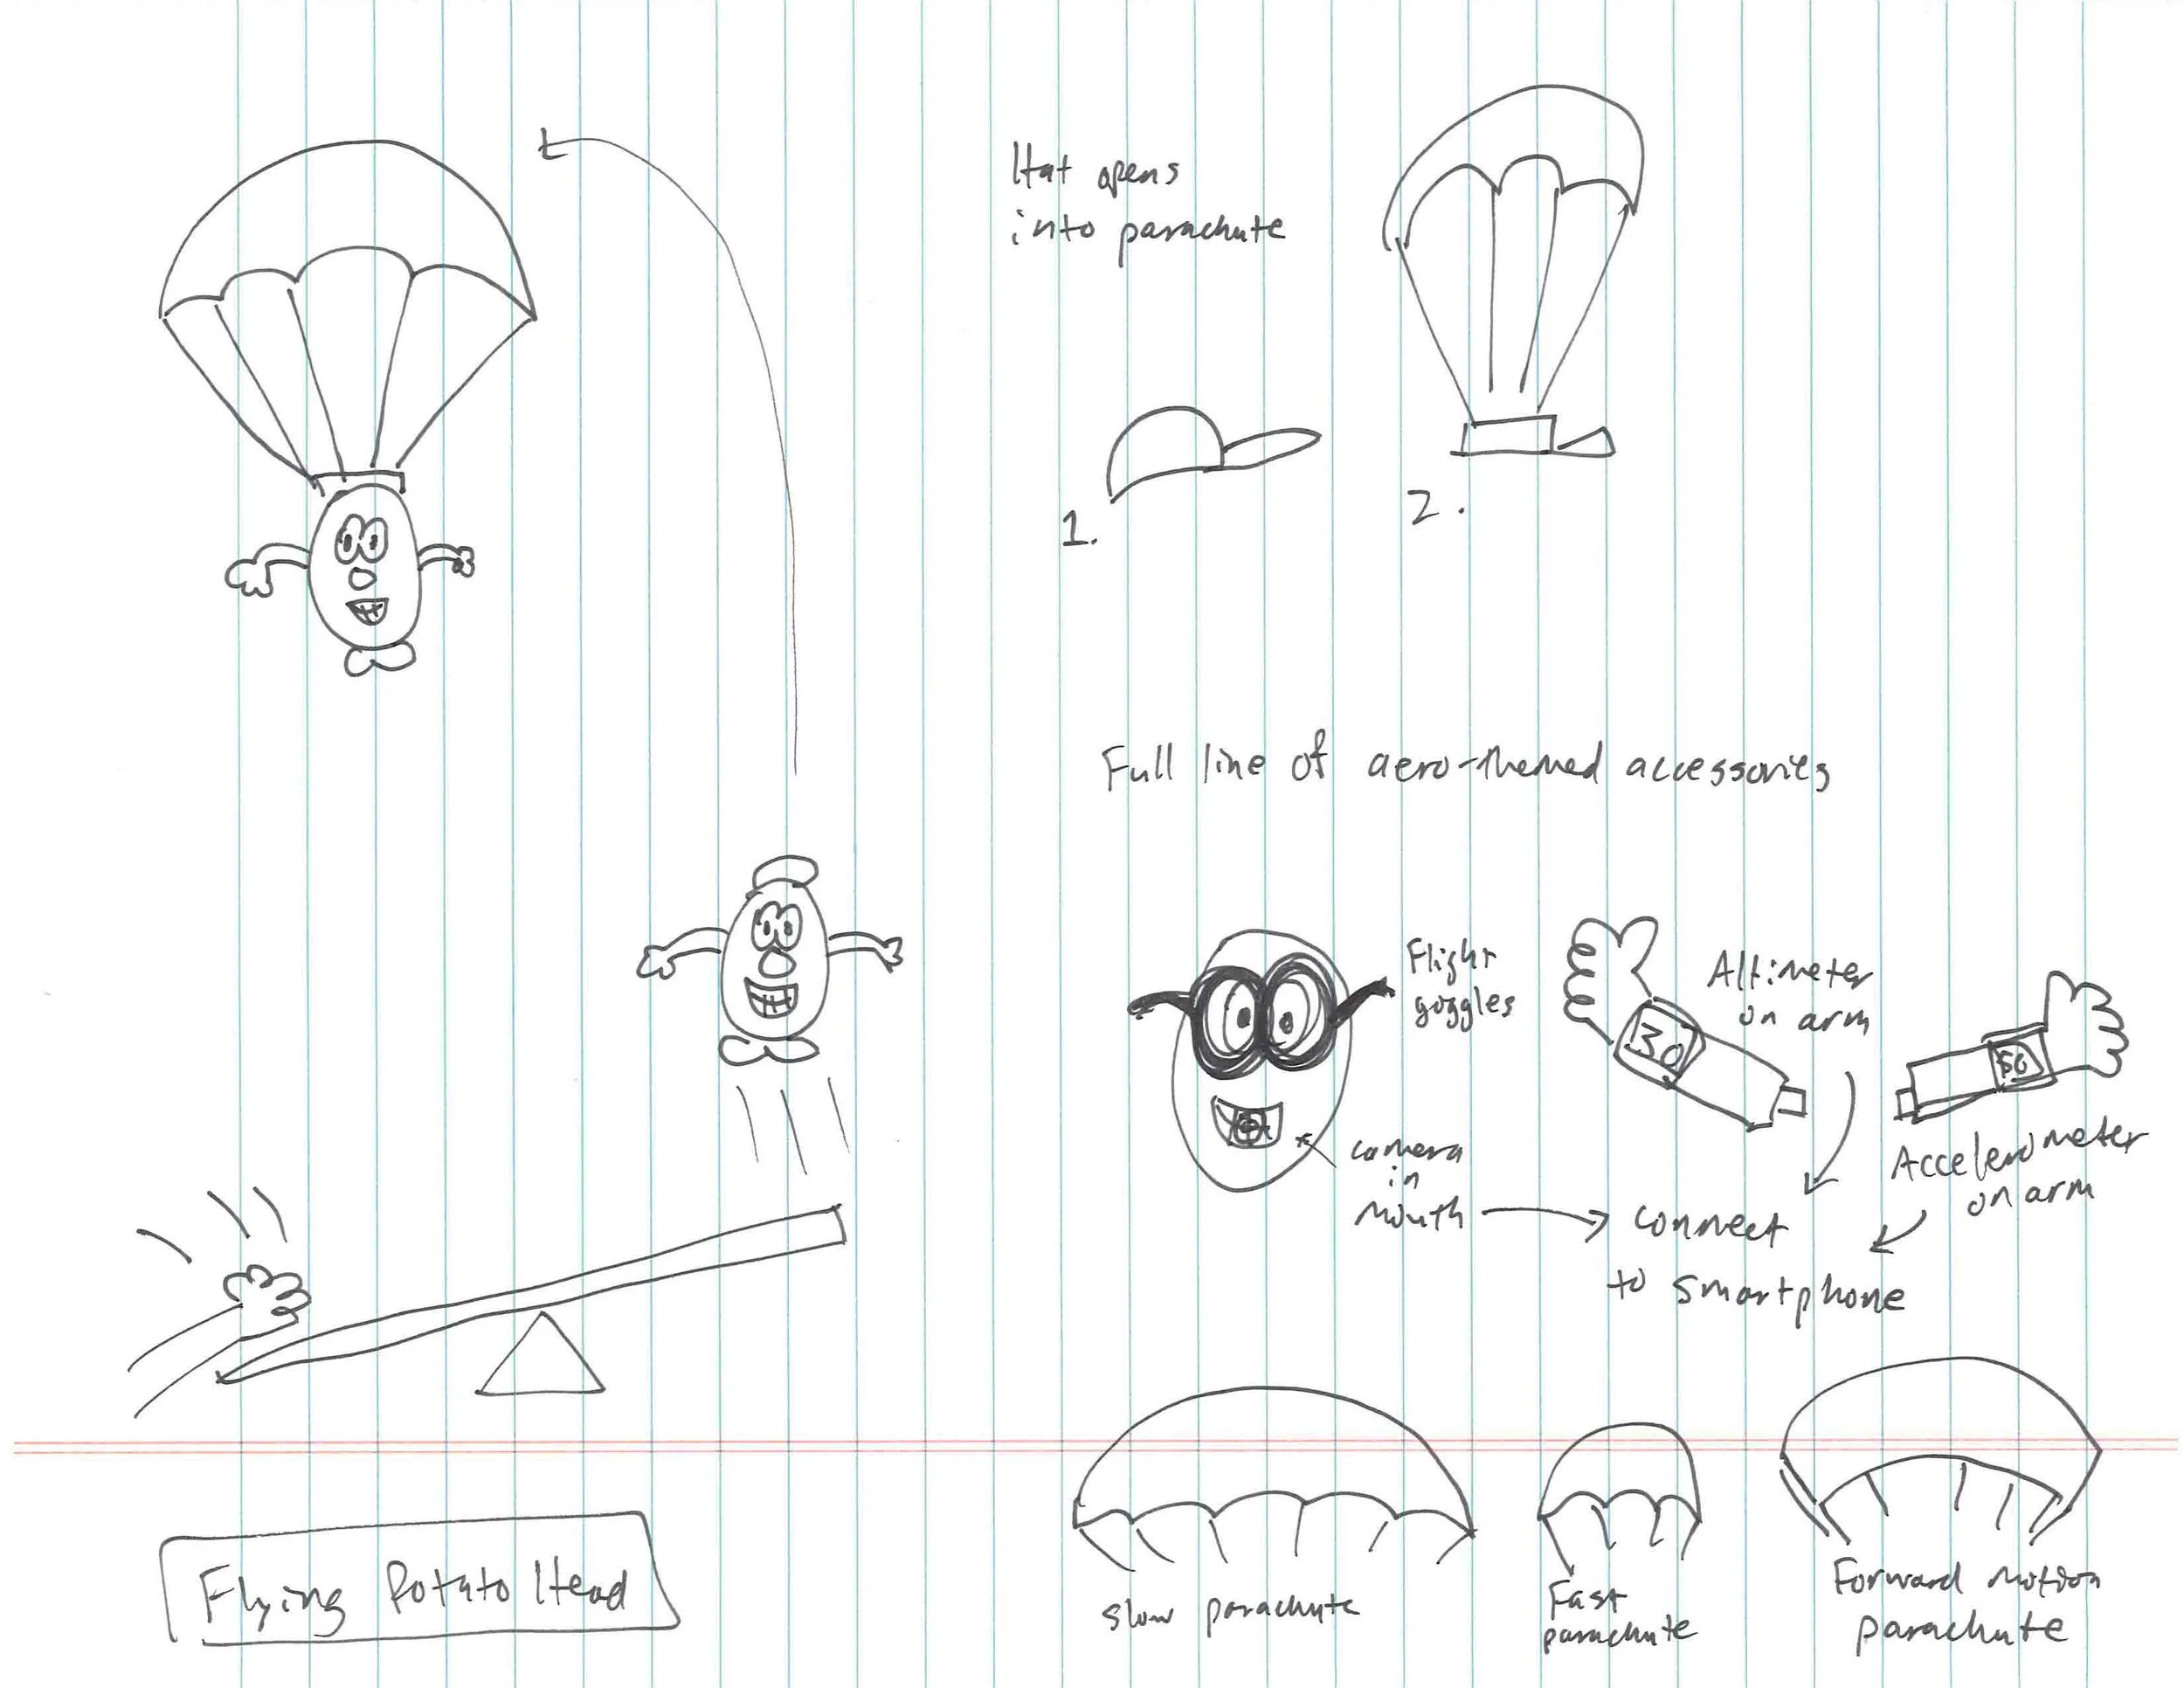 Hat opens
into parachute
1.
2.
Full line of aero-themed accessories
Flight
goggles
Altimeter
on arm
30
50
Accelerometer
on arm
camera
in
mouth
connect
to smartphone
slow parachute
Fast
parachute
Forward motion
parachute
Flying Potato Head